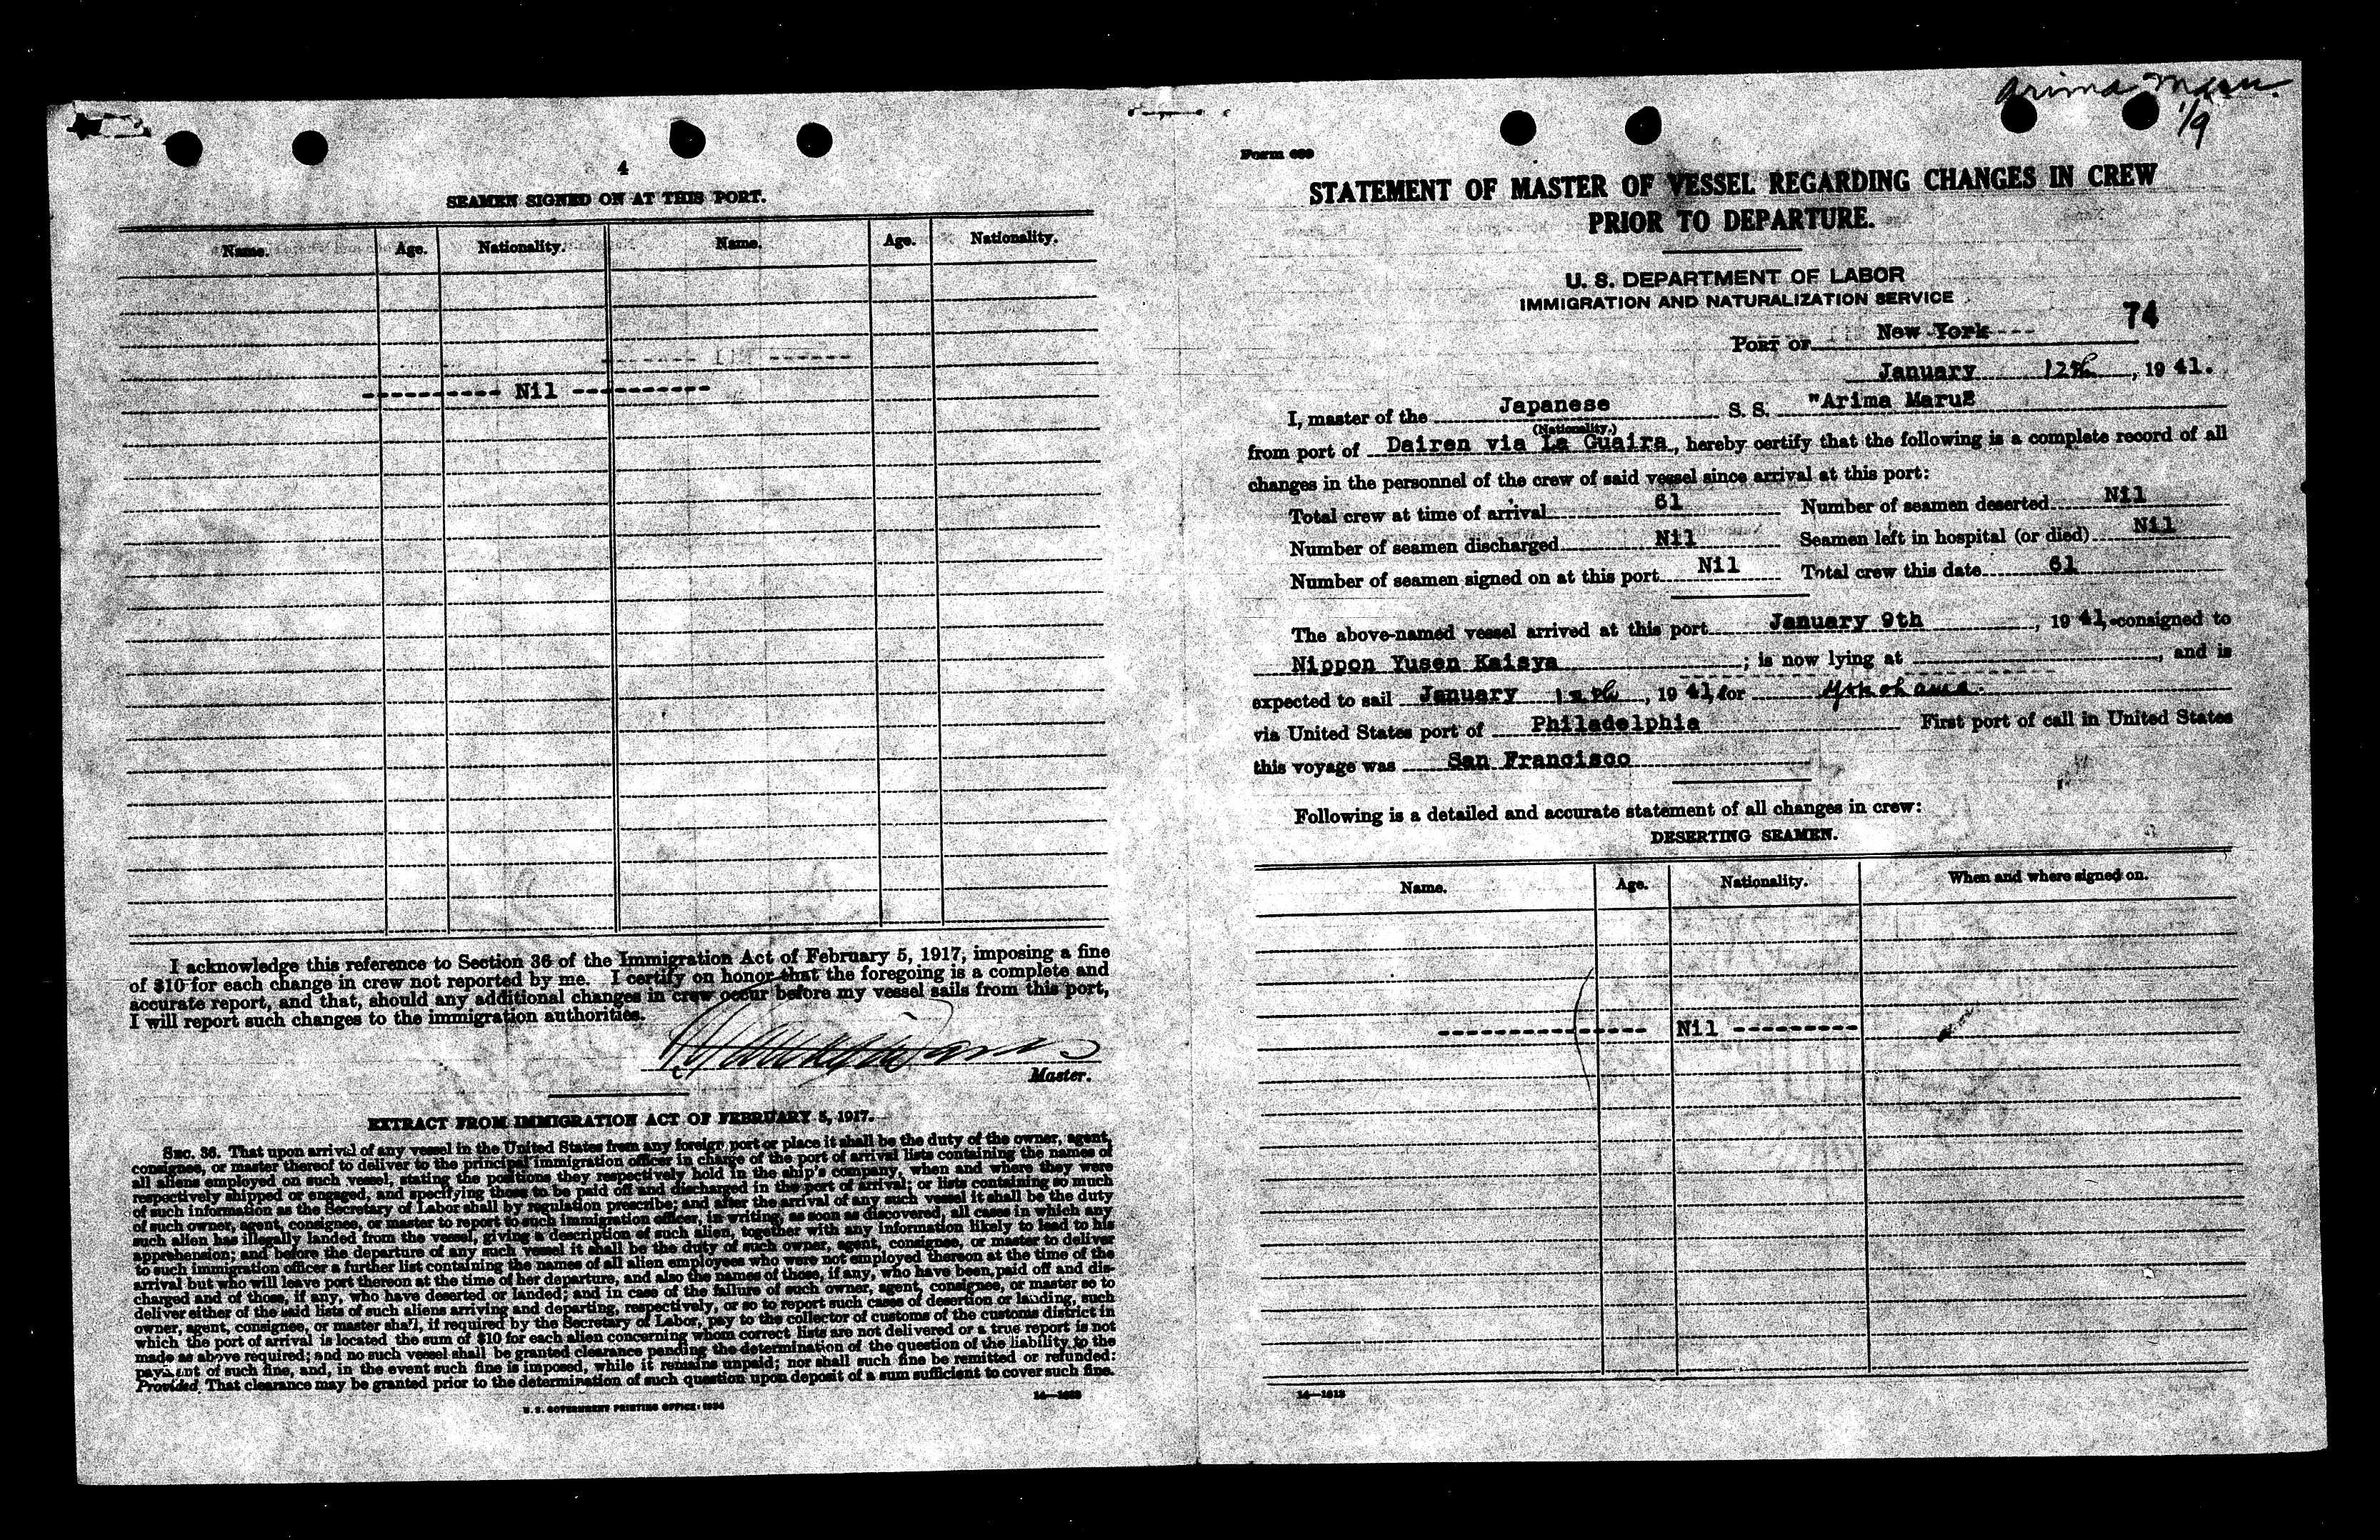 4
SEAMEN SIGNED ON AT THIS PORT.
Name. Age. Nationality. Name. Age. Nationality.
---------- Nil ----------
I acknowledge this reference to Section 36 of the Immigration Act of February 5, 1917, imposing a fine
of $10 for each change in crew not reported by me. I certify on honor that the foregoing is a complete and
accurate report, and that, should any additional changes in crew occur before my vessel sails from this port,
I will report such changes to the immigration authorities.
Master.
EXTRACT FROM IMMIGRATION ACT OF FEBRUARY 5, 1917.
SEC. 36. That upon arrival of any vessel in the United States from any foreign port or place it shall be the duty of the owner, agent,
consignee, or master thereof to deliver to the principal immigration officer in charge of the port of arrival lists containing the names of
all aliens employed on such vessel, stating the positions they respectively hold in the ship's company, when and where they were
respectively shipped or engaged, and specifying those to be paid off and discharged in the port of arrival; or lists containing so much
of such information as the Secretary of Labor shall by regulation prescribe; and after the arrival of any such vessel it shall be the duty
of such owner, agent, consignee, or master to report to such immigration officer, in writing, as soon as discovered, all cases in which any
such alien has illegally landed from the vessel, giving a description of such alien, together with any information likely to lead to his
apprehension; and before the departure of any such vessel it shall be the duty of such owner, agent, consignee, or master to deliver
to such immigration officer a further list containing the names of all alien employees who were not employed thereon at the time of the
arrival but who will leave port thereon at the time of her departure, and also the names of those, if any, who have been paid off and dis-
charged and of those, if any, who have deserted or landed; and in case of the failure of such owner, agent, consignee, or master so to
deliver either of the said lists of such aliens arriving and departing, respectively, or so to report such cases of desertion or landing, such
owner, agent, consignee, or master shall, if required by the Secretary of Labor, pay to the collector of customs of the customs district in
which the port of arrival is located the sum of $10 for each alien concerning whom correct lists are not delivered or a true report is not
made as above required; and no such vessel shall be granted clearance pending the determination of the question of the liability to the
payment of such fine, and, in the event such fine is imposed, while it remains unpaid; nor shall such fine be remitted or refunded:
Provided, That clearance may be granted prior to the determination of such question upon deposit of a sum sufficient to cover such fine.
U. S. GOVERNMENT PRINTING OFFICE: 1934
Arima Maru.
1/9
Form 689
STATEMENT OF MASTER OF VESSEL REGARDING CHANGES IN CREW
PRIOR TO DEPARTURE.
U. S. DEPARTMENT OF LABOR
IMMIGRATION AND NATURALIZATION SERVICE
74
PORT OF New York ---
January 12th, 1941.
I, master of the Japanese S. S. "Arima Maru"
(Nationality.)
from port of Dairen via La Guaira, hereby certify that the following is a complete record of all
changes in the personnel of the crew of said vessel since arrival at this port:
Total crew at time of arrival 61 Number of seamen deserted Nil
Number of seamen discharged Nil Seamen left in hospital (or died) Nil
Number of seamen signed on at this port Nil Total crew this date 61
The above-named vessel arrived at this port January 9th, 1941, consigned to
Nippon Yusen Kaisya; is now lying at ----------, and is
expected to sail January 12th, 1941, for Yokohama.
via United States port of Philadelphia First port of call in United States
this voyage was San Francisco
Following is a detailed and accurate statement of all changes in crew:
DESERTING SEAMEN.
Name. Age. Nationality. When and where signed on.
---------- Nil ---------
14—1613